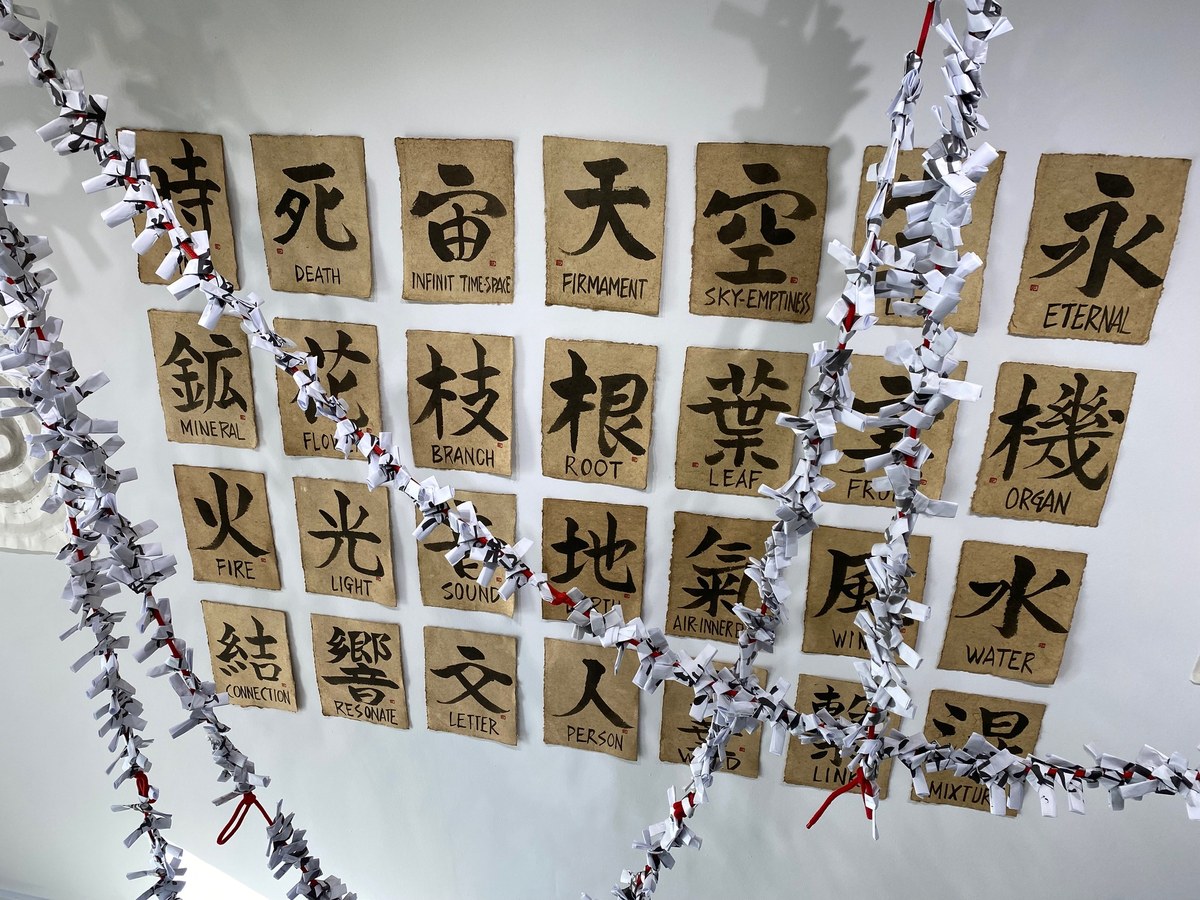 時
死
DEATH
宙
INFINIT TIME-SPACE
天
FIRMAMENT
空
SKY-EMPTINESS
永
ETERNAL
鉱
MINERAL
花
枝
BRANCH
根
ROOT
葉
LEAF
機
ORGAN
火
FIRE
光
LIGHT
音
SOUND
地
氣
風
水
WATER
結
CONNECTION
響
RESONATE
文
LETTER
人
PERSON
繋
混